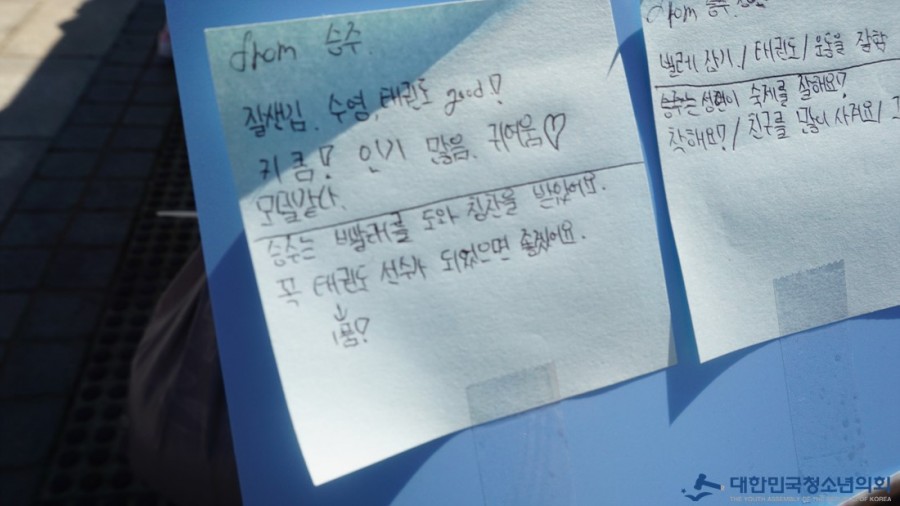 from 승주.
잘생김. 수영, 태권도 good!
키 큼! 인기 많음. 귀여움♡
모델같다.
승주는 빨래를 도와 칭찬을 받았어요.
꼭 태권도 선수가 되었으면 좋겠어요.
↓
품!
from 승주
발레 잡기 / 태권도 / 운동을 잘함
승주는 성현이 숙제를 잘해요!
착해요! / 친구를 많이 사겨요 /
대한민국청소년의회
THE YOUTH ASSEMBLY OF THE REPUBLIC OF KOREA